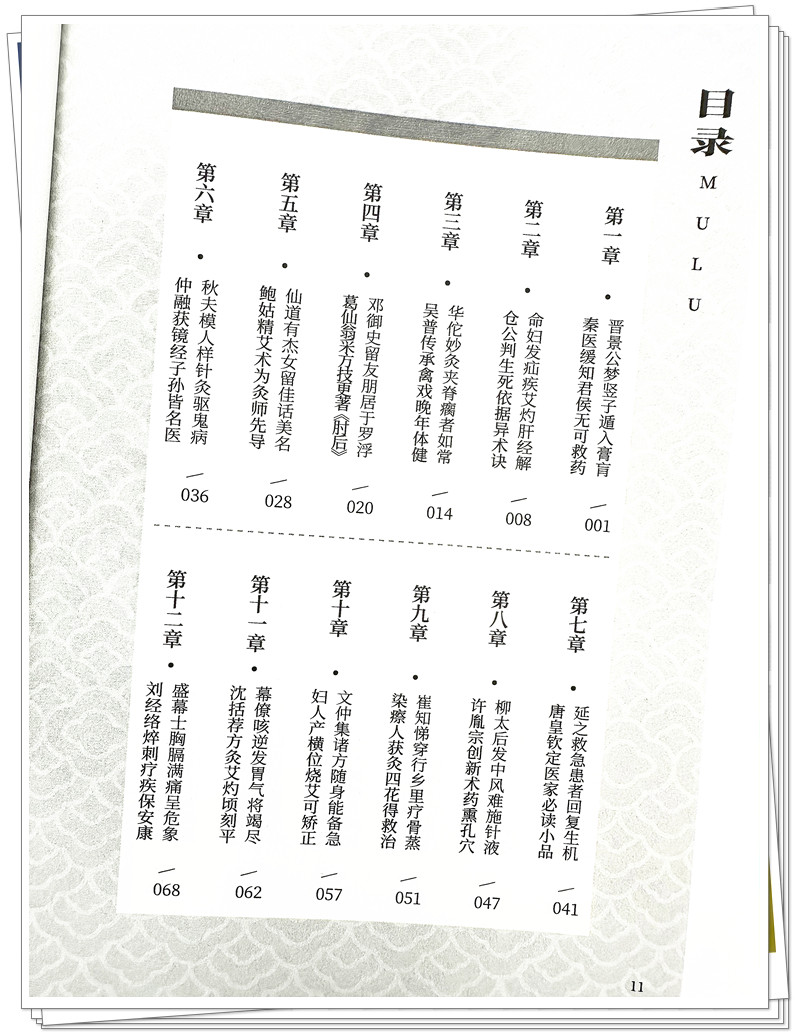 目录
MULU
第一章
晋景公梦竖子遁入膏肓
秦医缓知君侯无可救药
001
第二章
命妇发疝疾艾灼肝经解
仓公判生死依据异术诀
008
第三章
华佗妙灸夹脊瘸者如常
吴普传承禽戏晚年体健
014
第四章
邓御史留友朋居于罗浮
葛仙翁采方技更著《肘后》
020
第五章
仙道有杰女留佳话美名
鲍姑精艾术为灸师先导
028
第六章
秋夫模人样针灸驱鬼病
仲融获镜经子孙皆名医
036
第七章
延之救急患者回复生机
唐皇钦定医家必读小品
041
第八章
柳太后发中风难施针液
许胤宗创新术药熏孔穴
047
第九章
崔知悌穿行乡里疗骨蒸
染瘵人获灸四花得救治
051
第十章
文仲集诸方随身能备急
妇人产横位烧艾可矫正
057
第十一章
幕僚咳逆发胃气将竭尽
沈括荐方灸艾灼顷刻平
062
第十二章
盛幕士胸膈满痛呈危象
刘经络焠刺疗疾保安康
068
11